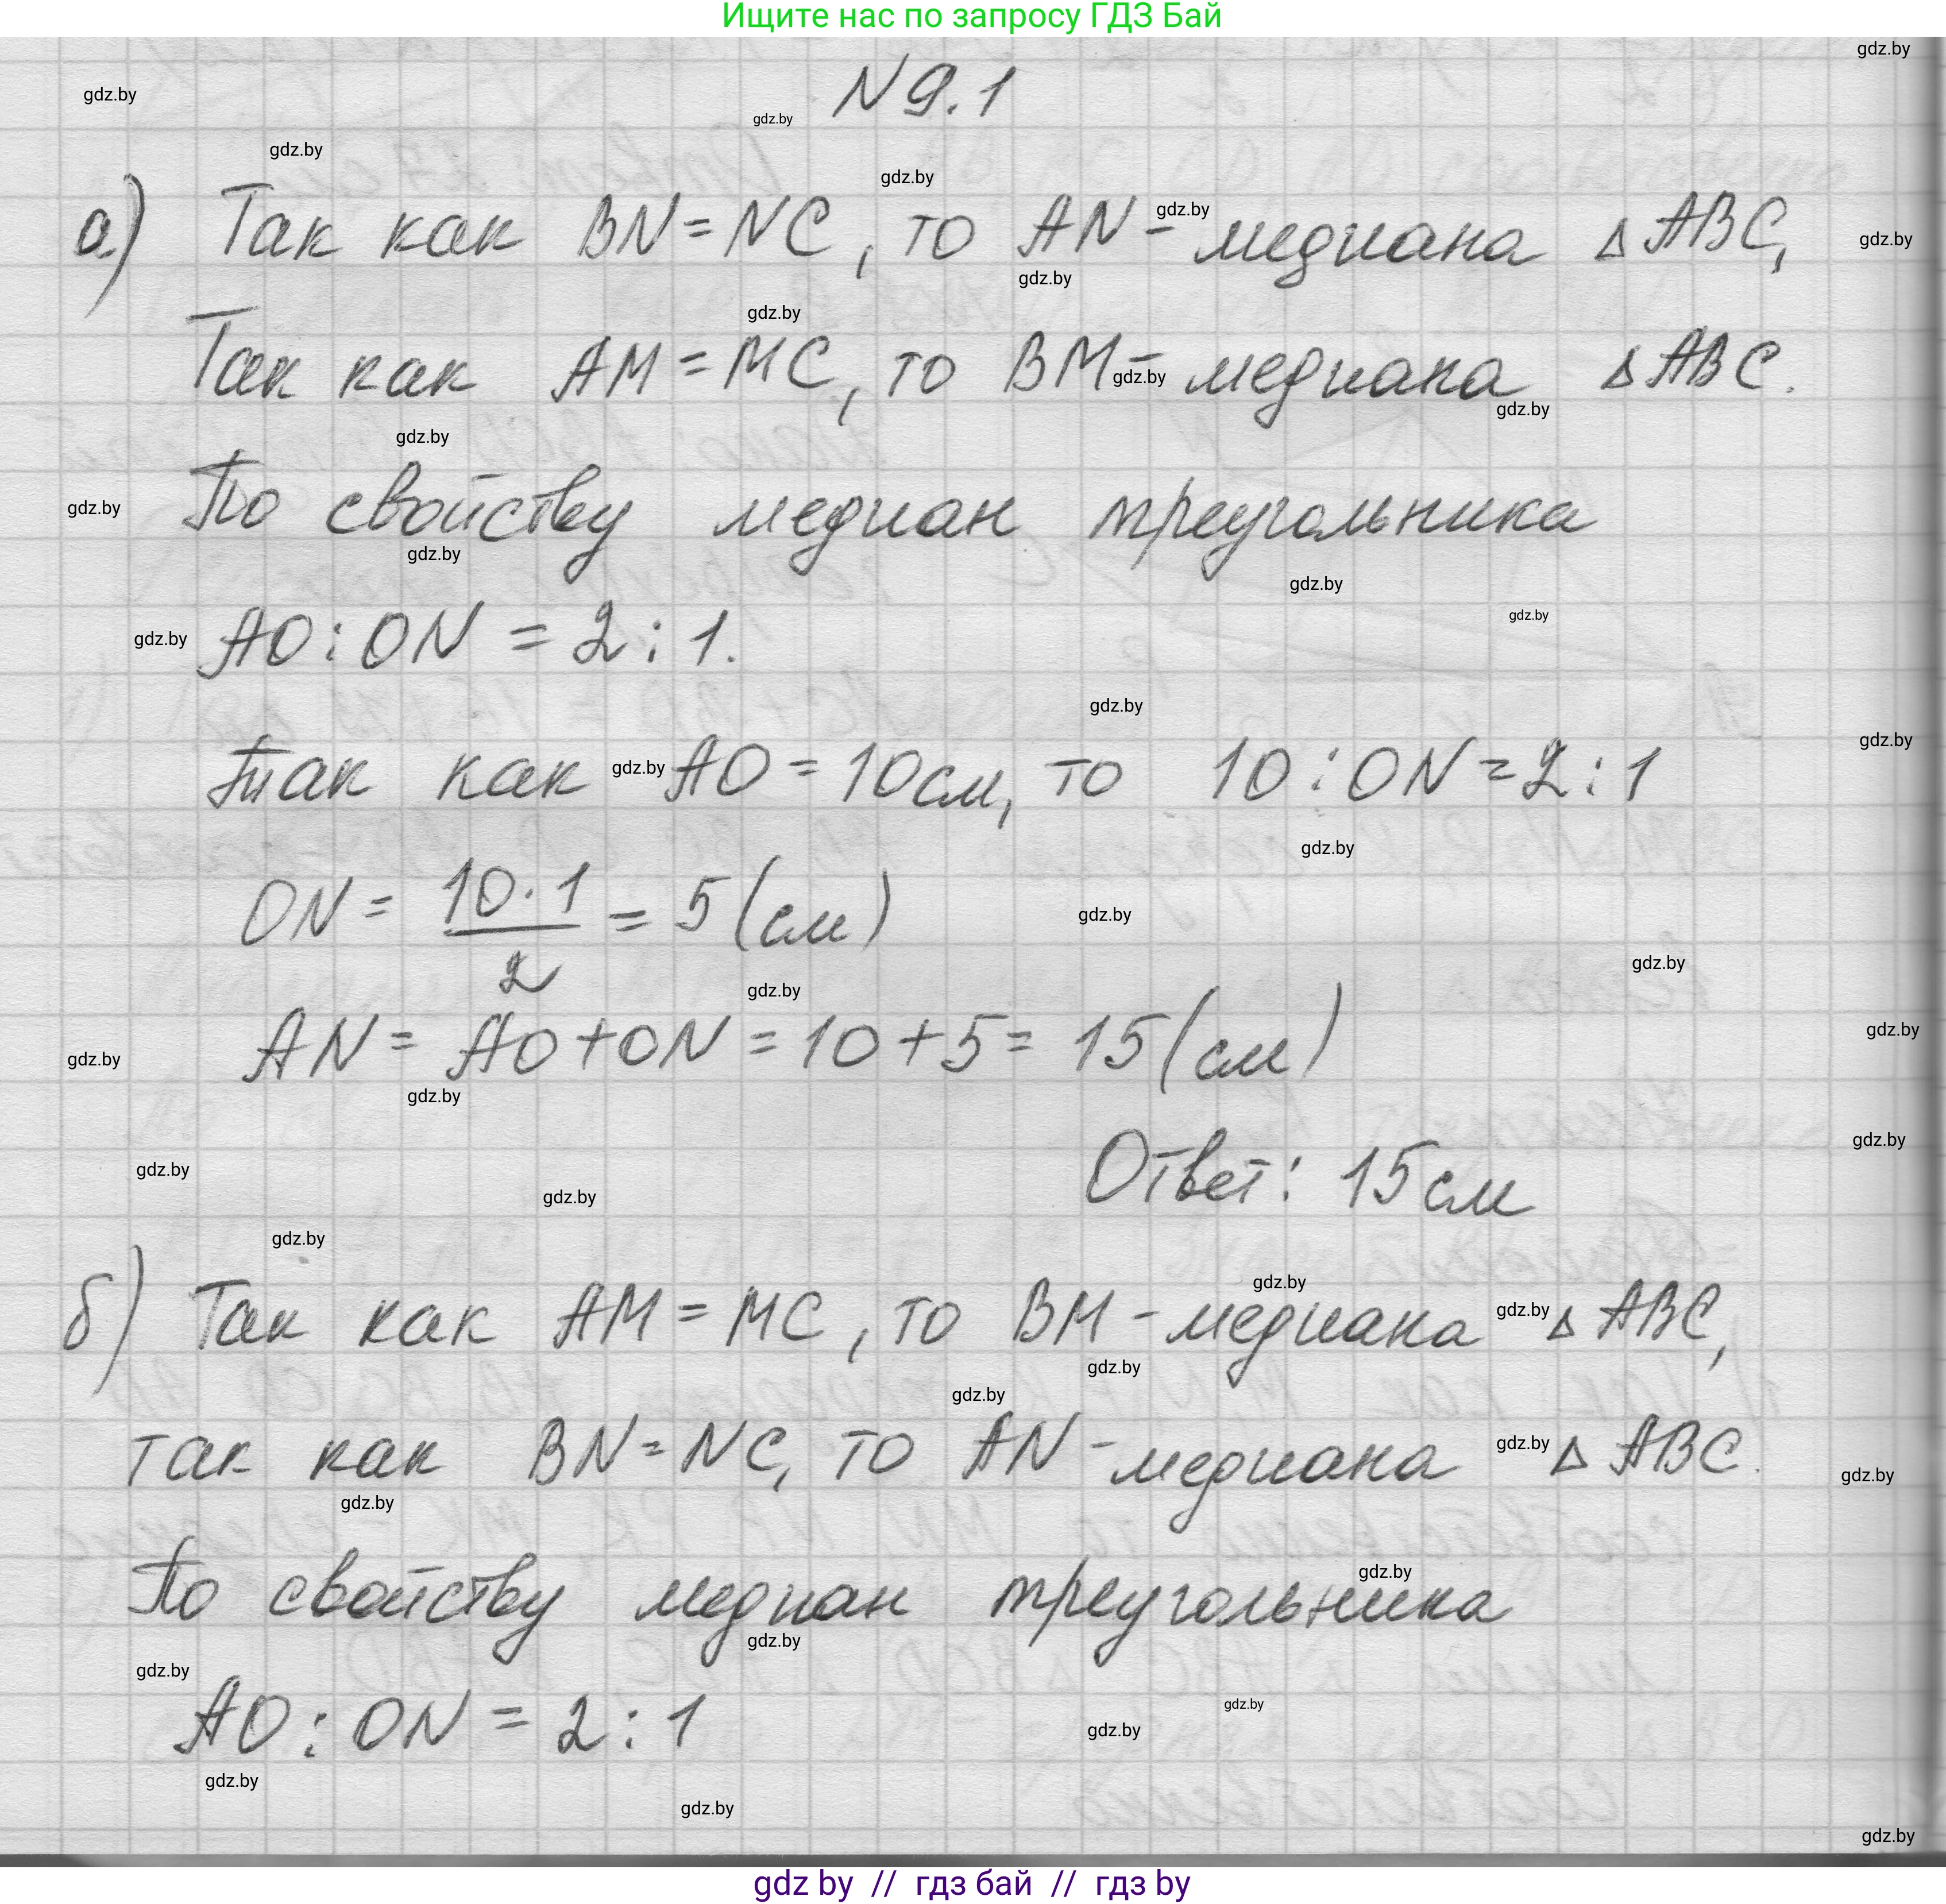 Ищите нас по запросу ГДЗ Бай
N 9.1
а) Так как BN = NC, то AN - медиана △ ABC,
Так как AM = MC, то BM - медиана △ ABC.
По свойству медиан треугольника
AO : ON = 2 : 1.
Так как AO = 10 см, то 10 : ON = 2 : 1
ON = 10·1/2 = 5 (см)
AN = AO + ON = 10 + 5 = 15 (см)
Ответ: 15 см
б) Так как AM = MC, то BM - медиана △ ABC,
так как BN = NC, то AN - медиана △ ABC.
По свойству медиан треугольника
AO : ON = 2 : 1
gdz by // гдз бай // гдз by